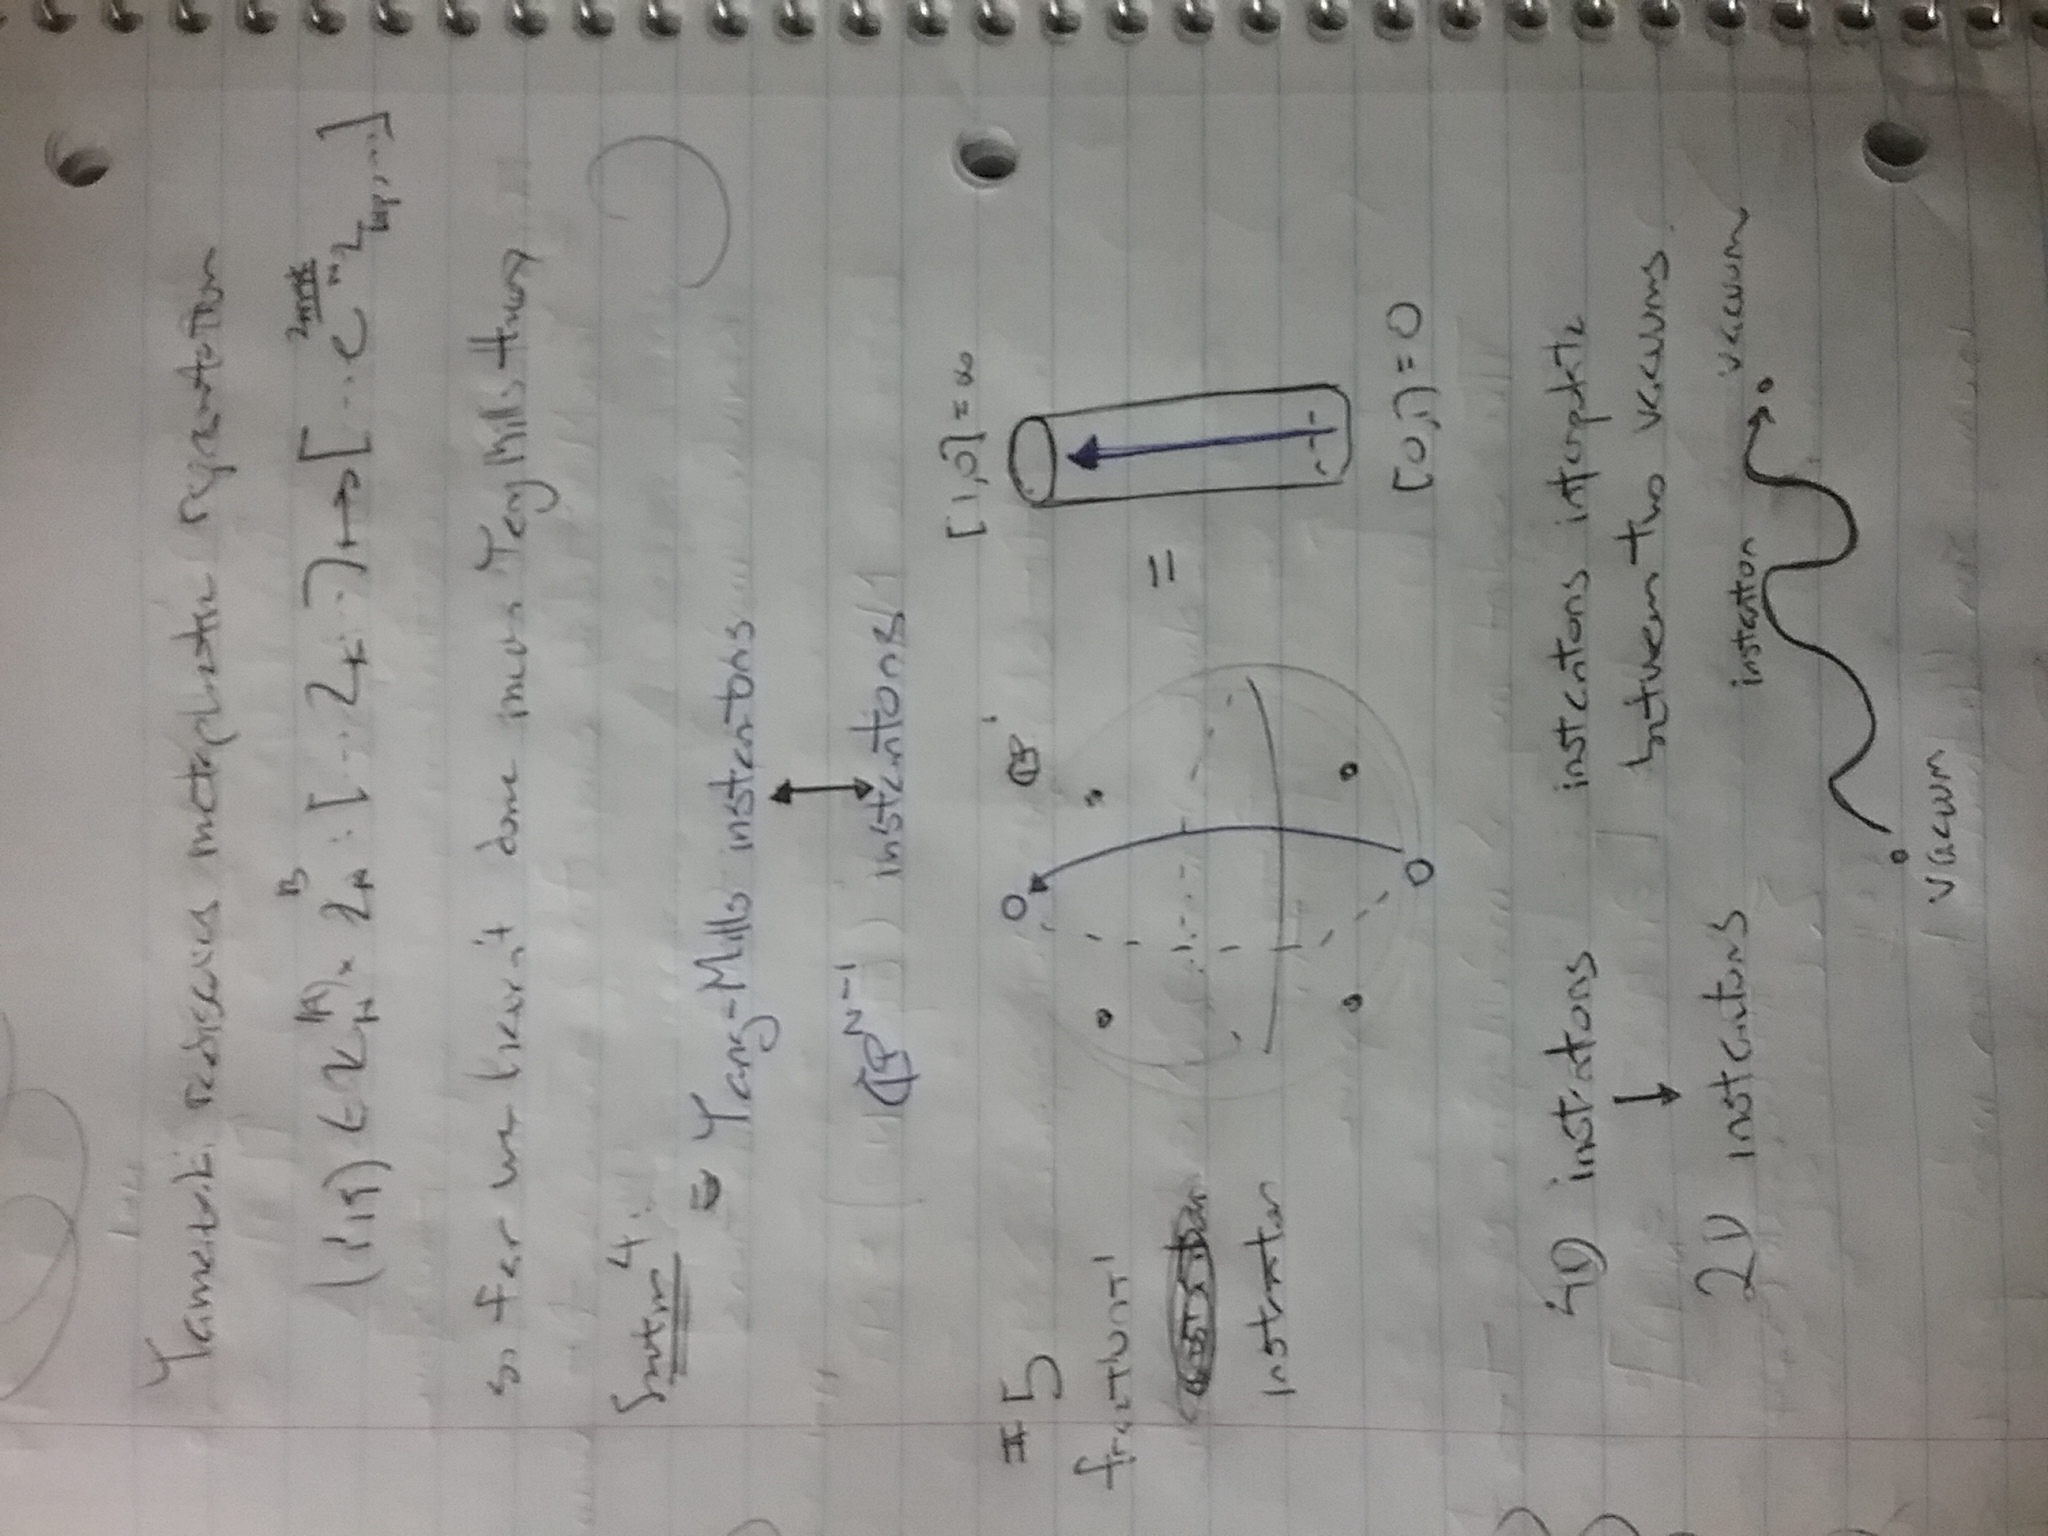 Yamazaki rediscovers metaplectic representation
(p,q) ∈ Z_N^(A) × Z_N^B : [... Z_k ...] ↦ [... e
so far we haven't done much Yang Mills theory
Section 4:
= Yang-Mills instantons
↕
(CP^{N-1}) instantons
#5
fractional
instanton
CP^1
[1,0] = ∞
=
[0,1] = 0
4D instantons
↓
2D instantons
instantons interpolate
between two vacuums.
vacuum
instanton
vacuum